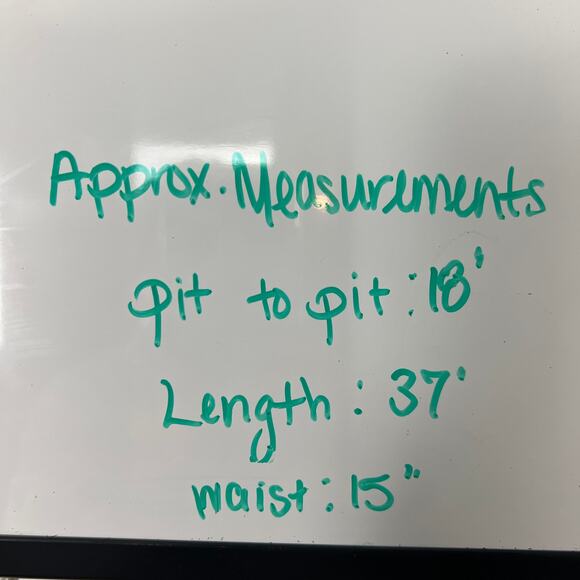 Approx. Measurements
pit to pit: 18'
Length: 37'
waist: 15"